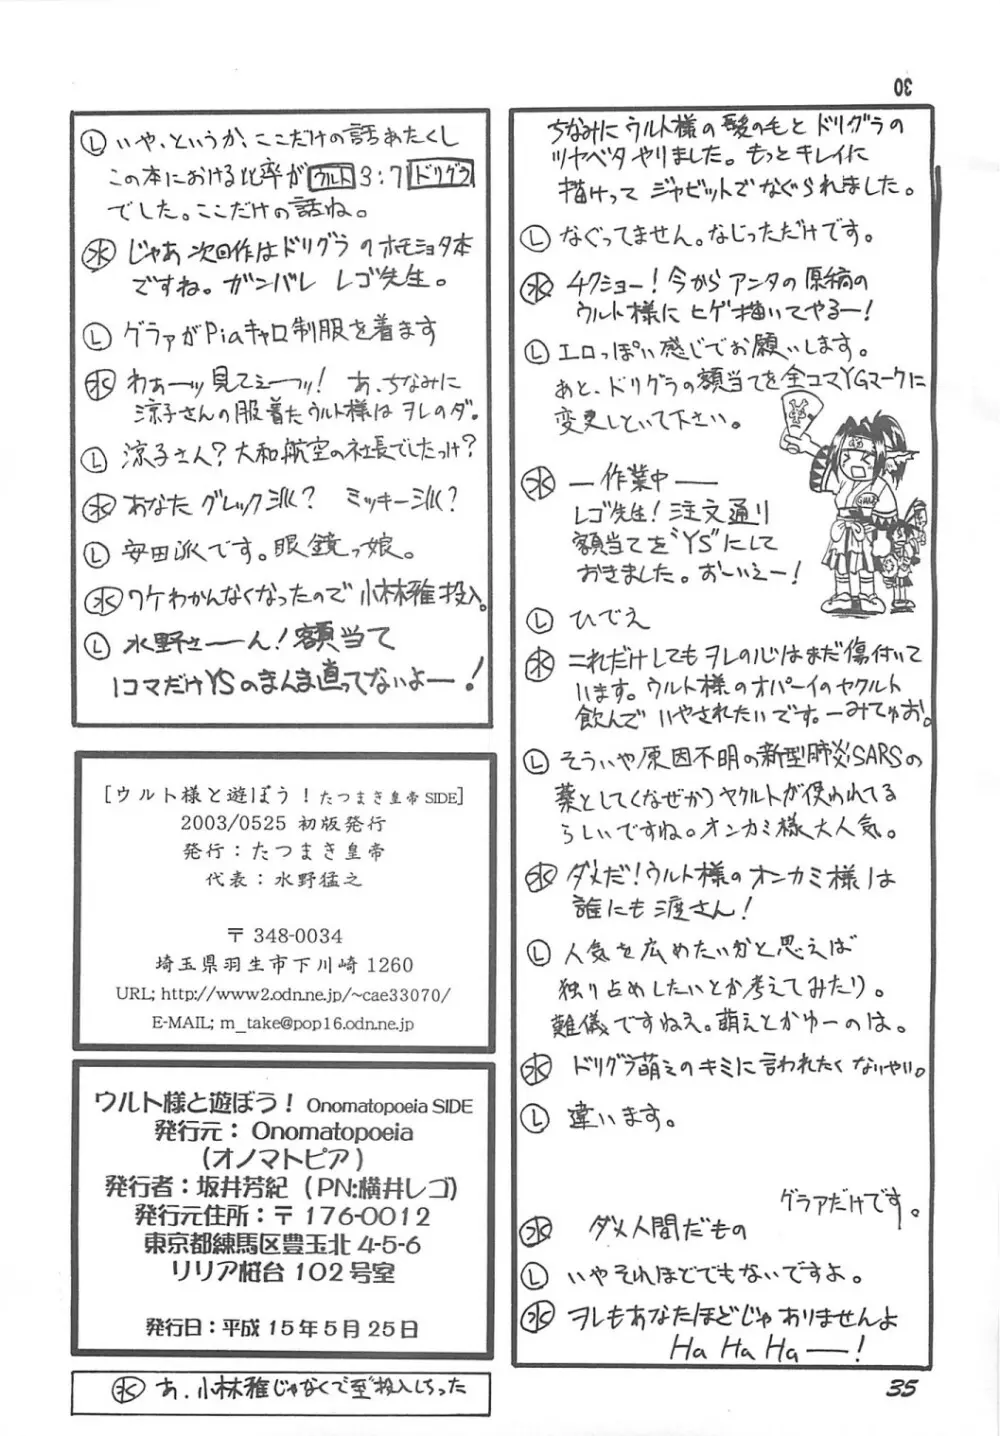 30
ちなみにウルト様の髪の毛とドリグラの
ツヤベタやりました。もっとキレイに
描けって ジャビットでなぐられました。
Ⓛ なぐってません。なじっただけです。
㊌ チクショー!今からアンタの原稿の
ウルト様に ヒゲ描いてやるー!
Ⓛ エロっぽい感じでお願いします。
あと、ドリグラの額当てを全コマYGマークに
変更しといて下さい。
㊌ ―作業中―
レゴ先生!注文通り
額当てを“YS”にして
おきました。おーいえー!
Ⓛ ひでえ
㊌ これだけしてもヲレの心はまだ傷付いて
います。ウルト様のオパーイのヤクルト
飲んで いやされたいです。―みてゅお。
Ⓛ そういや原因不明の新型肺炎SARSの
薬として(なぜか)ヤクルトが使われてる
らしいですね。オンカミ様大人気。
㊌ ダメだ!ウルト様のオンカミ様は
誰にも渡さん!
Ⓛ 人気を広めたいかと思えば
独り占めしたいとか考えてみたり。
難儀ですねえ。萌えとかゆーのは。
㊌ ドリグラ萌えのキミに言われたくないやい。
Ⓛ 違います。
グラァだけです。
㊌ ダメ人間だもの
Ⓛ いやそれほどでもないですよ。
㊌ ヲレもあなたほどじゃありませんよ
Ha Ha Ha ―!
Ⓛ いや、というか、ここだけの話あたくし
この本における比率が ウルト 3:7 ドリグラ
でした。ここだけの話ね。
㊌ じゃあ次回作はドリグラのホモショタ本
ですね。ガンバレ レゴ先生。
Ⓛ グラァがPiaキャロ制服を着ます
㊌ わぁーッ見てぇーッ! あ、ちなみに
涼子さんの服着たウルト様はヲレのダ。
Ⓛ 涼子さん?大和航空の社長でしたっけ?
㊌ あなたグレッグ派? ミッキー派?
Ⓛ 安田派です。眼鏡っ娘。
㊌ ワケわかんなくなったので小林雅投入。
Ⓛ 水野さーーん!額当て
1コマだけYSのまんま直ってないよー!
[ウルト様と遊ぼう!たつまき皇帝 SIDE]
2003/0525 初版発行
発行:たつまき皇帝
代表:水野猛之
〒 348-0034
埼玉県羽生市下川崎 1260
URL; http://www2.odn.ne.jp/~cae33070/
E-MAIL; m_take@pop16.odn.ne.jp
ウルト様と遊ぼう! Onomatopoeia SIDE
発行元: Onomatopoeia
(オノマトピア)
発行者:坂井芳紀 (PN:横井レゴ)
発行元住所:〒 176-0012
東京都練馬区豊玉北 4-5-6
リリア桜台 102 号室
発行日:平成 15 年 5 月 25 日
㊌ あ、小林雅じゃなくて
35